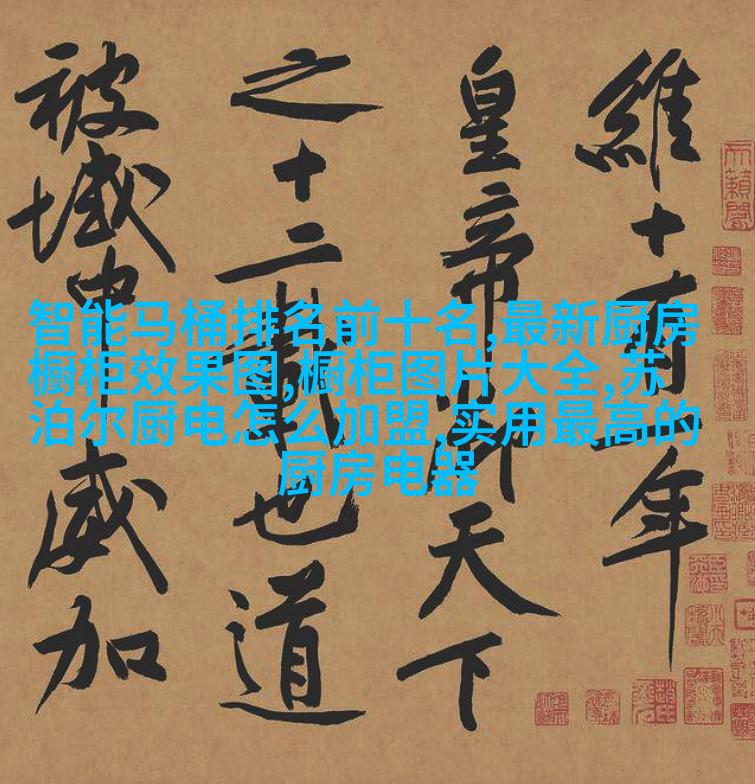 維十有一年
皇帝御天下
之十二載也道
被域中威加
智能马桶排名前十名,最新厨房
橱柜效果图,橱柜图片大全,苏
泊尔厨电怎么加盟,实用最高的
厨房电器
天籟閣